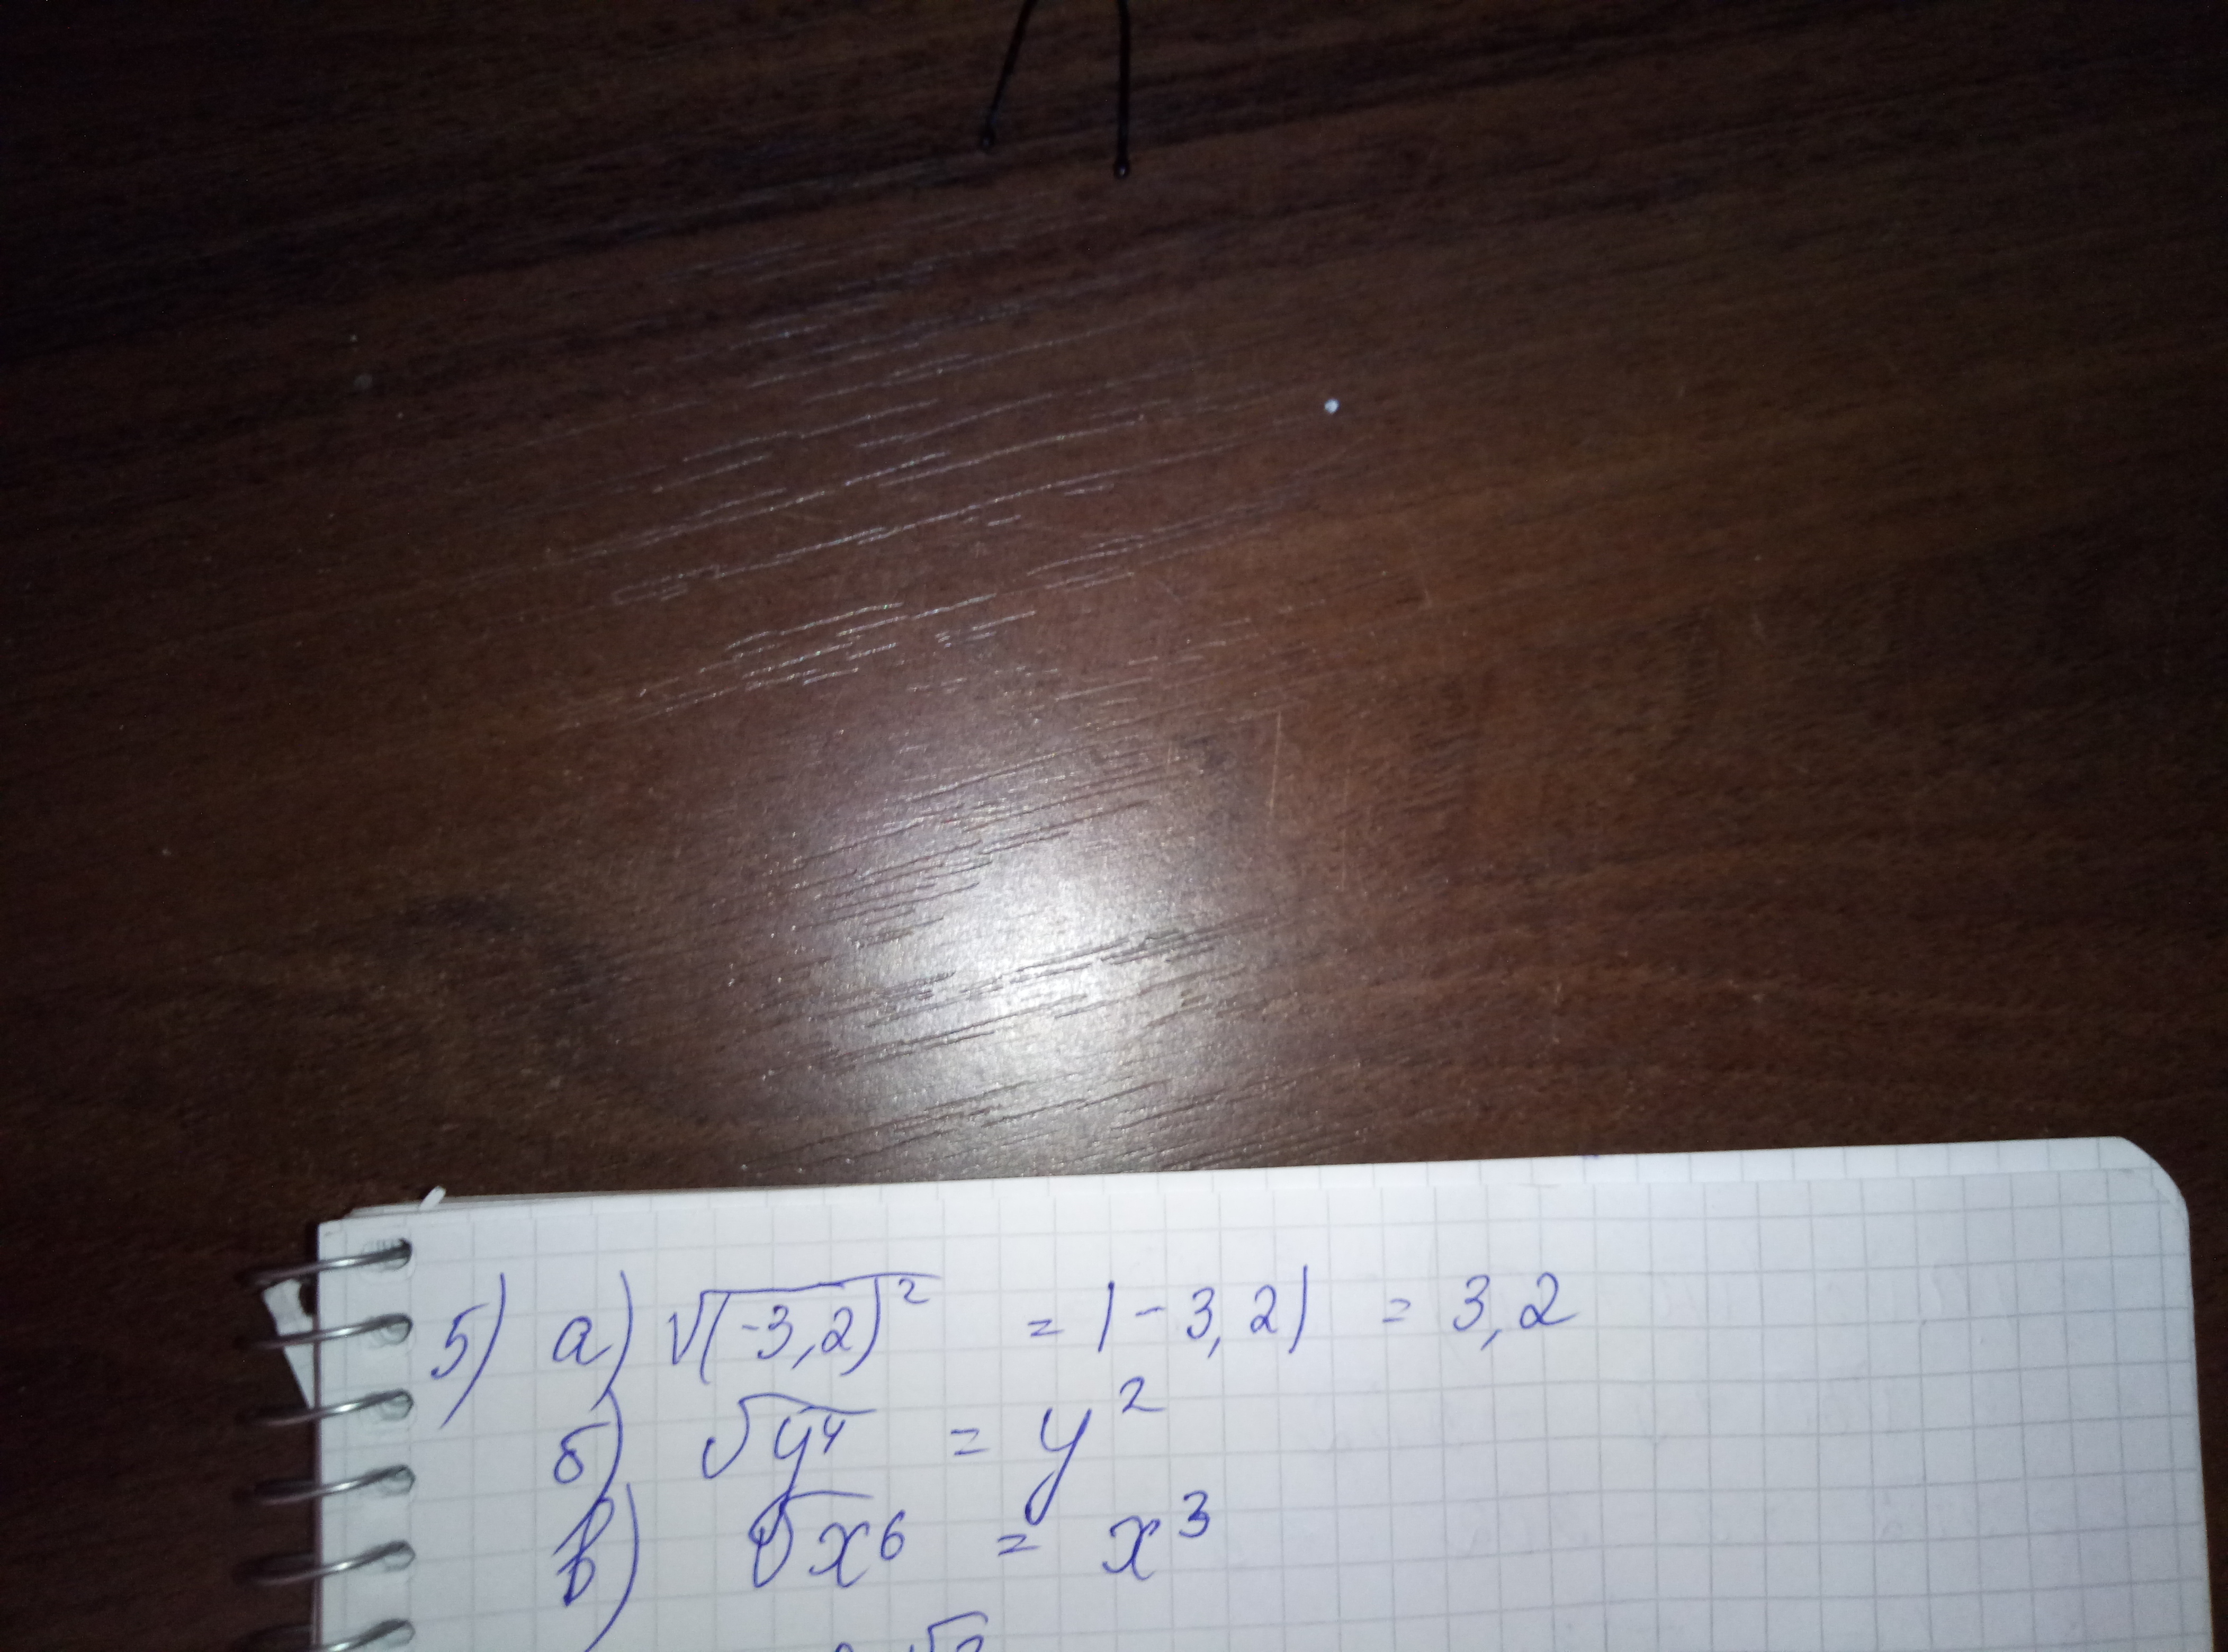 5) а) √(-3,2)² = |-3,2| = 3,2
б) √y⁴ = y²
в) √x⁶ = x³